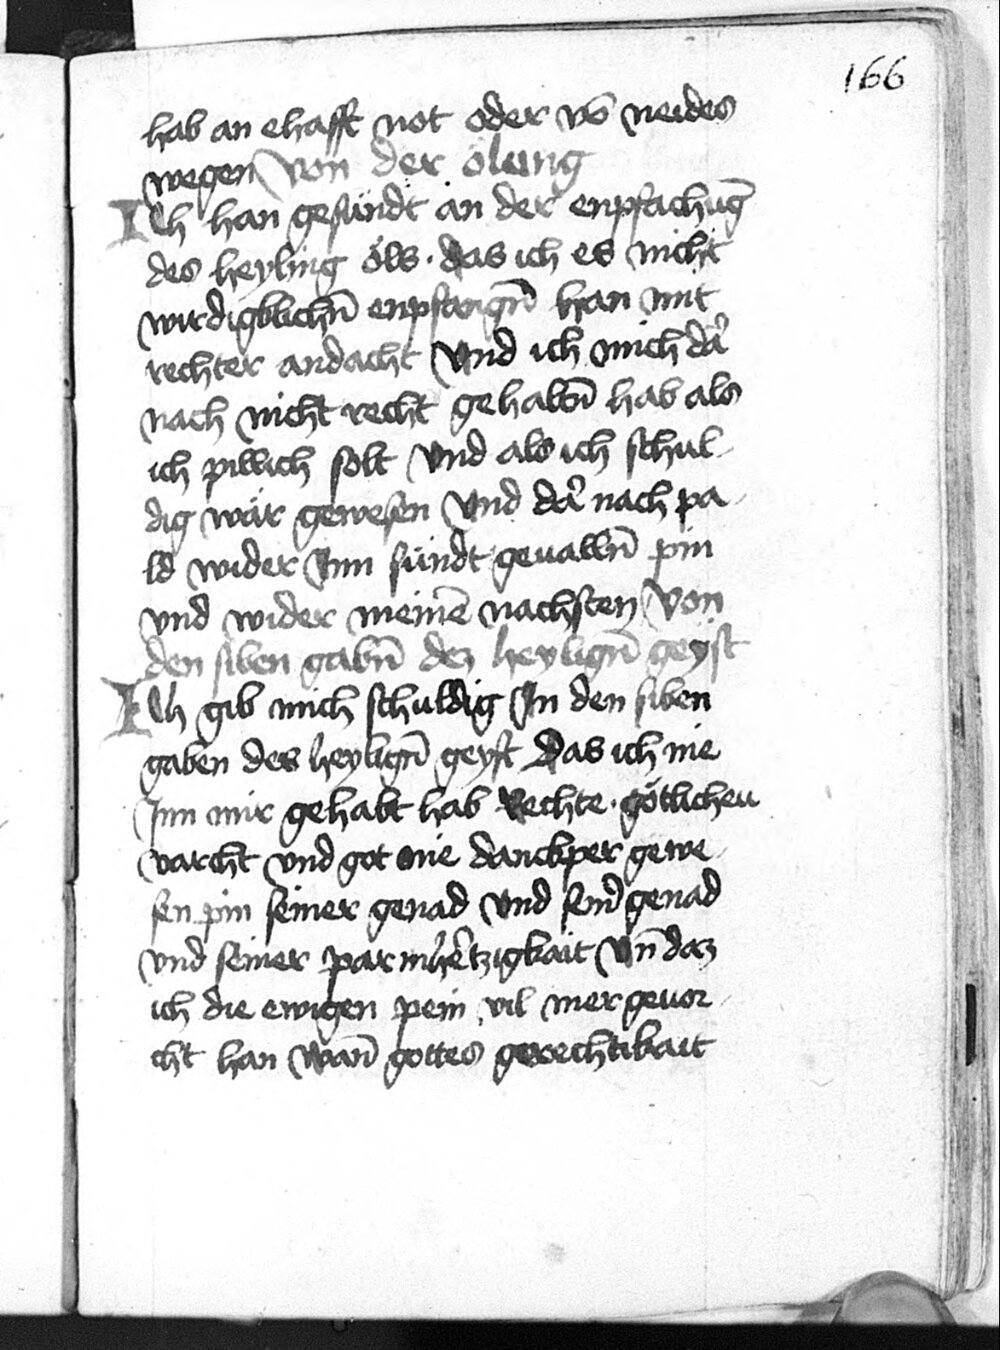 166
hab an ehafft not oder vo̅ neides
wegen Von der ölung
ICh han gesündt an der enpfachug̅
des heyling öls · das ich es nicht
wirdigklichn̅ enpfangn̅ han mit
rechter andacht Vnd ich mich da᷑
nach nicht recht gehaltn̅ hab als
ich pillich solt Vnd als ich schul
dig wär gewesen Vnd da᷑ nach pa
ld wider Jnn sündt geualln̅ pin
vnd wider meine̅ nachsten Von
den siben gabn̅ dez heylign̅ geyst
ICh gib mich schuldig Jn den siben
gaben des heylign̅ geyst Das ich nie
Jnn mir gehabt hab Rechte · götlicheu
varcht vnd got nie danckper gewe
sen pin seiner genad Vnd sein᷑ genad
vnd seiner parmhe᷑tzigkait Vn̅ daz
ich die ewigen pein vil mer geuor
cht han Wan̅ gottes gerechtikait